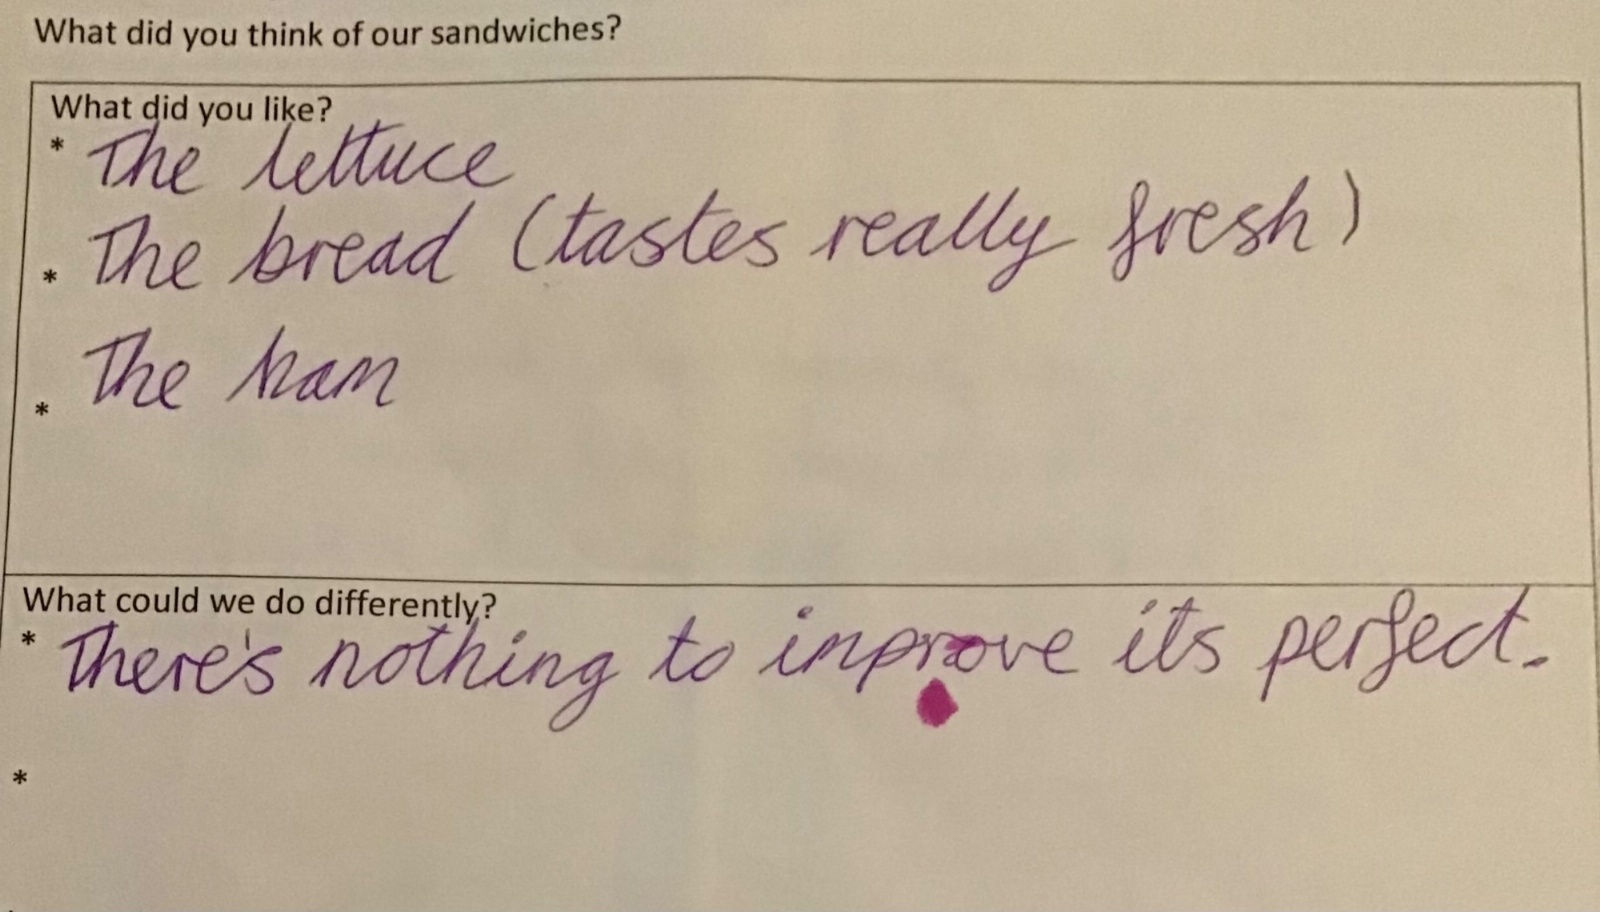 What did you think of our sandwiches?
What did you like?
* The lettuce
* The bread (tastes really fresh)
* The ham
What could we do differently?
* There's nothing to inprove its perfect.
*